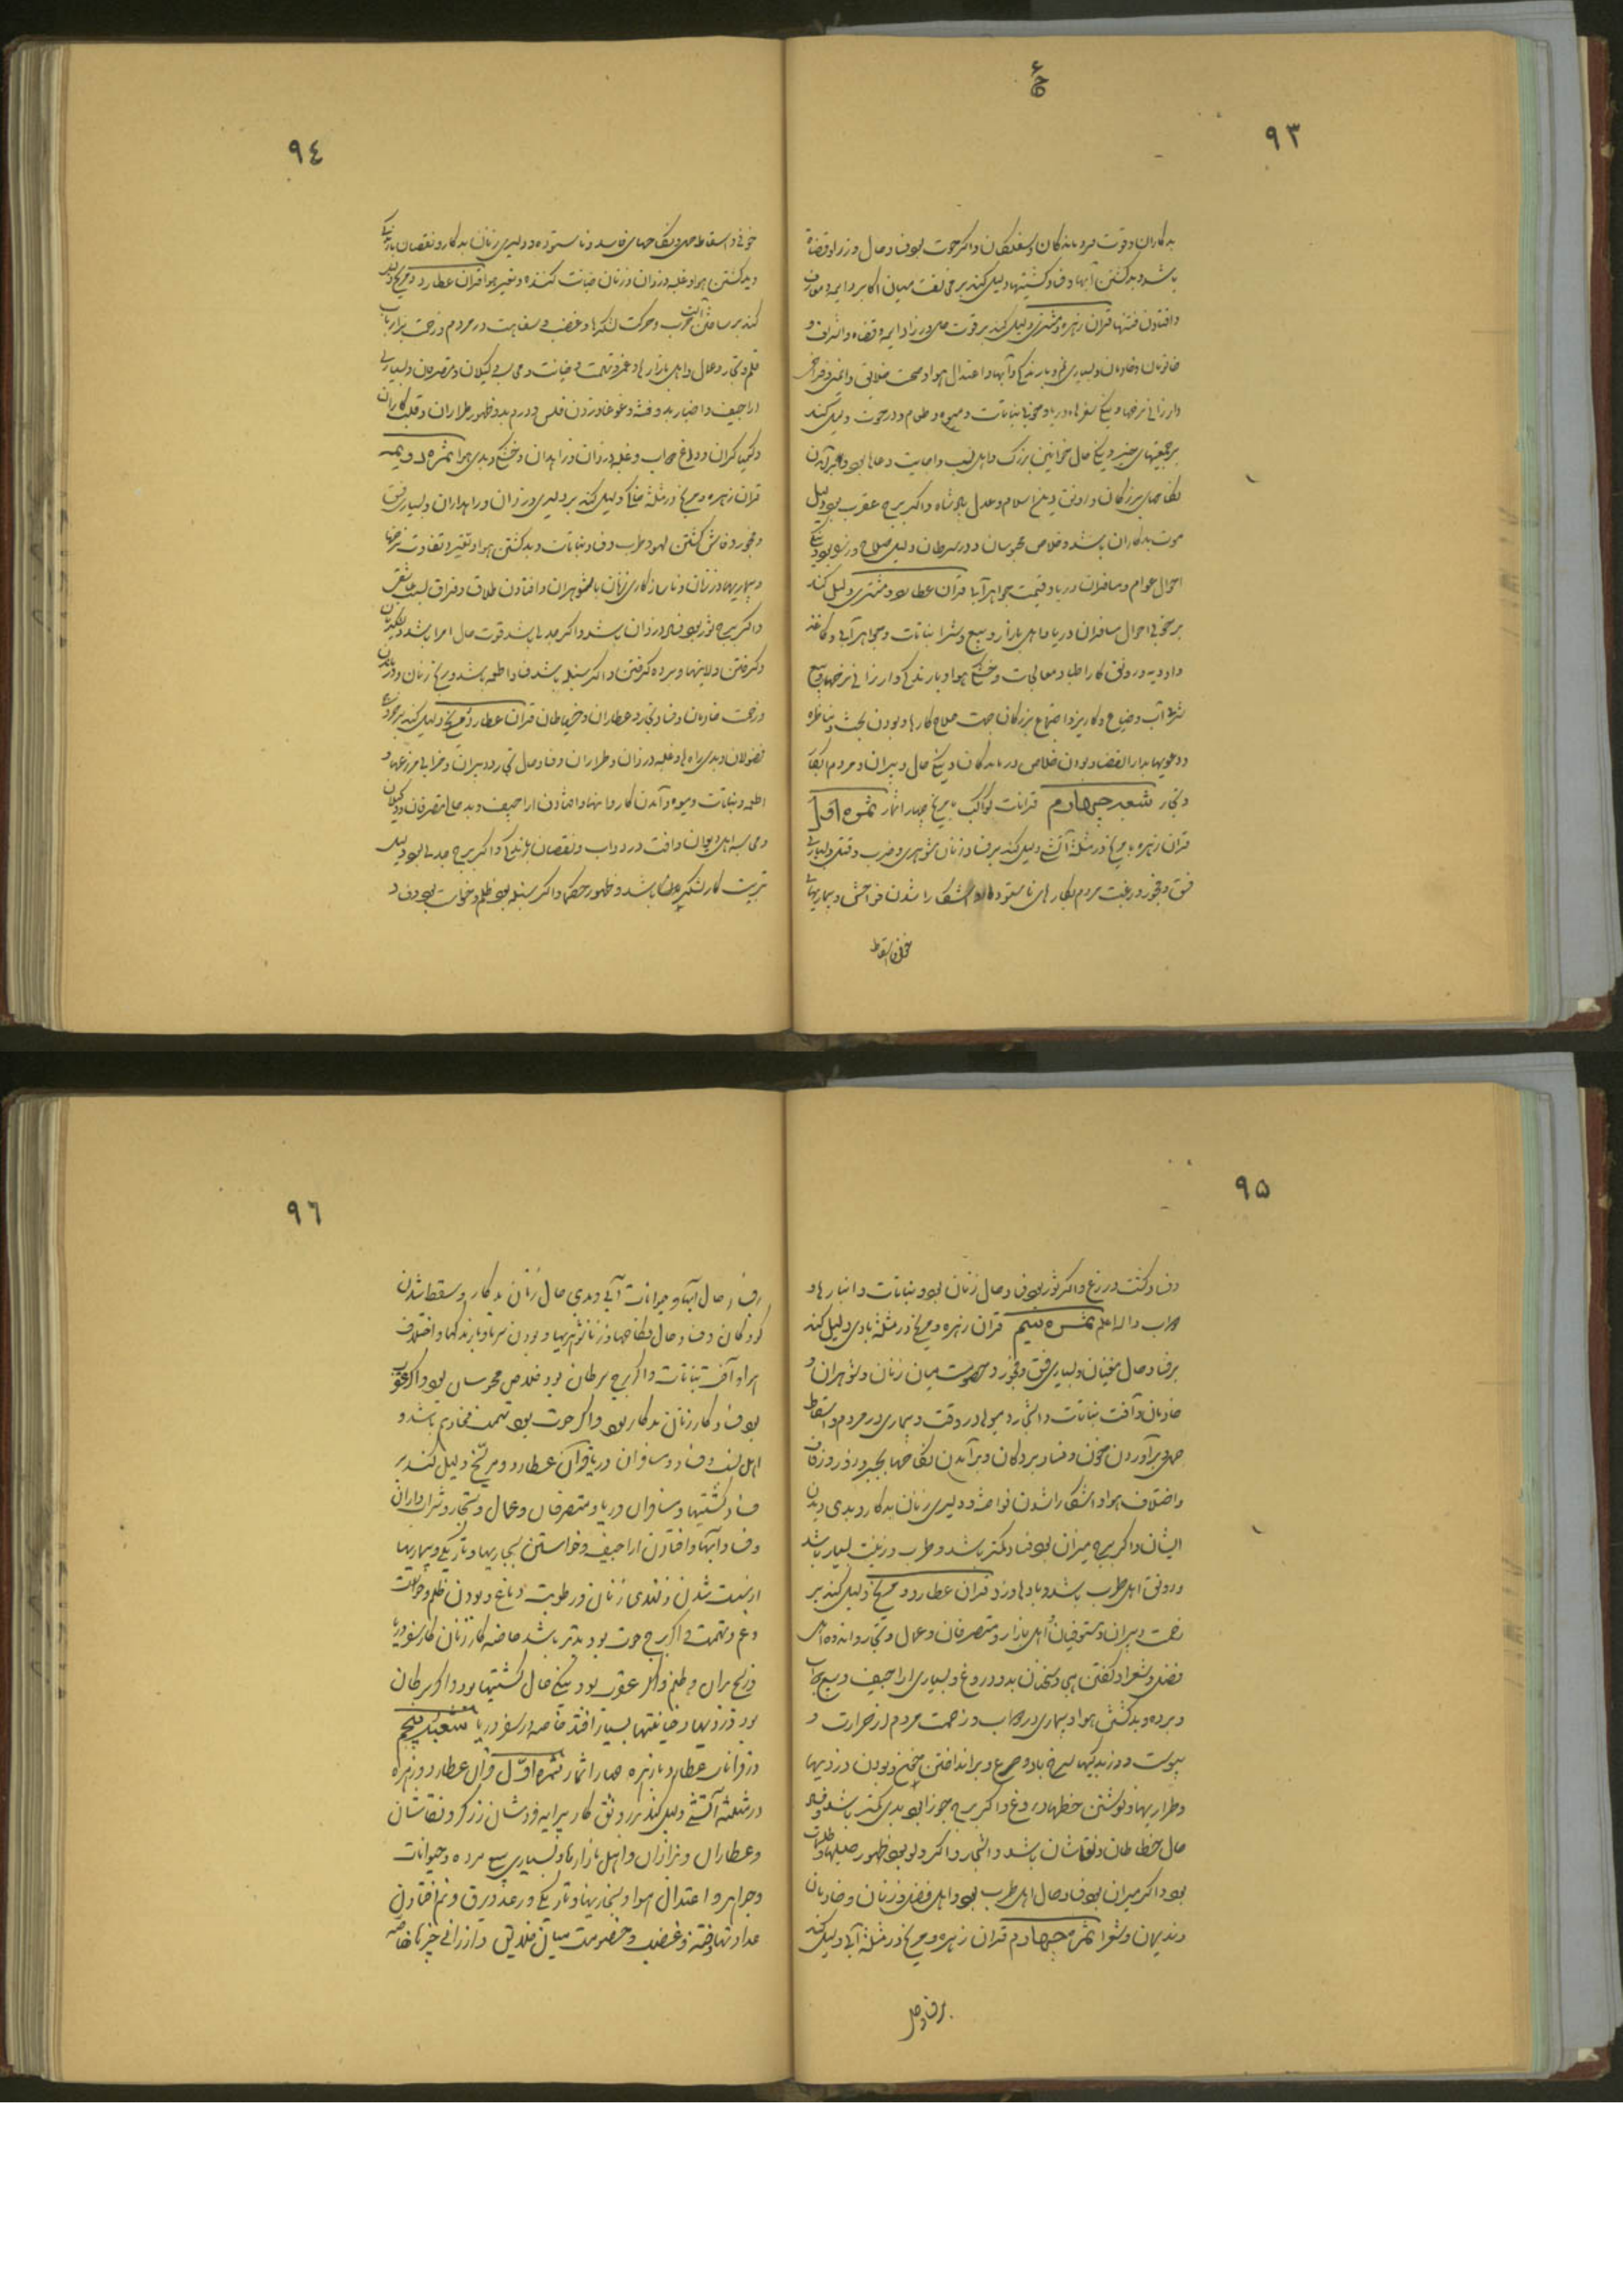 ۹۳
بدکاران و قوت فرومایدگان و سفلگان و اگر حوت بود فساد حال وزرا و قضاة
باشد و بد گشتن آبها و فساد کشتیها دلیل کند بر مخالفت میان اکابر و ایمه و معارف
و افتادن فتنها قران زهره و مشتری دلیل کند بر قوت حال وزرا و ایمه و قضاة و اشراف و
خاتونان و خادمان و بسیاری نم و بارندگی و آبها و اعتدال هوا و صحت خلایق و ایمنی و فراخی
و ارزانی نرخها و نیکی سفرهاء دریا و خوبی نباتات و میوه و طعام و در حوت دلیل کند
بر جمعیتهای خیر و نیکی حال خواتین بزرگ و اهل نسب و اجابت دعاها بود و برآمدن
نکاحهای بزرگان و رونق دین اسلام و عدل پادشاه و اگر برج عقرب بود دلیل
موت بدکاران باشد و خلاص محبوسان و در سرطان دلیل صلاح
احوال عوام و مسافران دریا و قیمت جواهر آبی قران عطارد و مشتری دلیل کند
بر خوبی احوال مسافران دریا و اهل بازار و بیع و شرا نباتات و جواهر آبی و کاغذ
و ادویه و رونق کار اطبا و معالجات و خشکی هوا و بارندگی و ارزانی نرخها و بیع
شراب و ضیاع و کاریز و اجتماع بزرگان جهت صلاح کارها و بودن بحث و مناظره
و دعویها بدار القضا و بودن خلاص درماندگان و نیکی حال دبیران و مردم
و تجار شعبه چهارم قرانات کواکب با مریخ چهار اثمار ثمره اول
قران زهره با مریخ در مثلثه آتشی دلیل کند بر فساد زنان شوهری و ضرب و قتل و بسیاری
فسق و فجور و رغبت مردم بکارهای ناستوده و آشکارا شدن فواحش و بیماریهای
خونی و اسقاط
۹٤
خونی و اسقاط حمل و نکاحهای فاسد و ناستوده و دلیری زنان بدکار و نقصان بارندگی
و بد گشتن هوا و غلبه دزدان و زنان خیانت کننده و تغیر هوا قران عطارد و مریخ دلیل
کند بر ساختن آلت حرب و حرکت لشکرها و غضب و سفاهت در مردم و زحمت بر ارباب
قلم و تجار و عمال و اهل بازارها و غمز و تهمت و خیانت و محاسبه وکیلان و متصرفان و بسیاری
اراجیف و اخبار بد و فتنه و غوغا و زدن فلس و درم بد و ظهور طراران و قلب کاران
و کیمیاگران و دروغ حساب و غلبه دزدان و راهداران و خشکی و بدی هوا ثمره دویمه
قران زهره و مریخ در مثلثه خاکی دلیل کند بر دلیری دزدان و راهداران و بسیار فسق
و فجور و فاش گشتن لهو و طرب و فساد نباتات و بد گشتن هوا و تغیر و تفاوت نرخها
و بیماریها در زنان و ناسازگاری زنان با شوهران و افتادن طلاق و فراق بسبب عاشقی
و اگر برج ثور بود فساد زنان باشد و اگر جدی باشد قوت حال امرا باشد و لشکریان
و گرفتن ولایتها و برده گرفتن و اگر سنبله باشد فساد اطعمه باشد و رنج زنان
و زحمت خادمان و فساد تجار و عطاران و خیاطان قران عطارد و مریخ دلیل کند بر
فضولان و بدی راهها و غلبه دزدان و طراران و فساد حال تجار و دبیران و خرابی مزرعها و
اطعمه و نباتات و میوه و آمدن کاروانها و افتادن اراجیف و بد حالی متصرفان و وکیلان
و محاسبه اهل دیوان و آفت در دواب و نقصان بارندگی و اگر برج جدی بود دلیل
تربیت کار لشکریان باشد و ظهور حکما و اگر سنبله بود ظلم و خیانت بود و فساد
۹۵
و فساد کشت و زرع و اگر ثور بود فساد حال زنان بود و نباتات و انبارها و
حساب و الله اعلم ثمره سیم قران زهره و مریخ در مثلثه بادی دلیل کند
بر فساد حال مغنیان و بسیاری فسق و فجور و خصومت میان زنان و شوهران و
خادمان و آفت نباتات و اشجار و میوها در وقت و بیماری در مردم و اسقاط
حمل و برآوردن خون و فساد بردگان و برآمدن نکاحها بجبر و زور
و اختلاف هوا و آشکارا شدن فواحش و دلیری زنان بدکار و بدی دیدن
ایشان و اگر برج میزان بود فساد کمتر باشد و طرب و زینت بسیار باشد
و رونق اهل طرب باشد و بادها وزد قران عطارد و مریخ دلیل کند بر
زحمت دبیران و مستوفیان و اهل بازار و متصرفان و عمال و تجار و اندوه اهل
فضل و شعرا و گفتن هجو و سخنان بد و دروغ و بسیاری اراجیف و بیع
و برده و بد گشتن هوا و بیماری در دواب و زحمت مردم از حرارت و
یبوست و وزیدنگیها سرخ باد و صرع و برانداختن خون و بودن دزدیها
و طراریها و نوشتن خطهاء دروغ و اگر برج جوزا بود بدی کمتر باشد و فساد
حال خطاطان و نقاشان باشد و اشجار و اگر دلو بود ظهور حیلها و طلسمات
بود و اگر میزان بود فساد حال اهل طرب بود و اهل فضل و زنان و خادمان
و ندیمان و شعرا ثمره چهارم قران زهره و مریخ در مثلثه آبی دلیل کند
بر فساد حال
۹٦
بر فساد حال آبها و حیوانات آبی و بدی حال زنان بدکار و سقط شدن
کودکان و فساد حال نکاحها و زناشوهریها و بودن سرما و بارندگیها و اختلاف
هوا و آفت نباتات و اگر برج سرطان بود خلاص محبوسان بود و اگر عقرب
بود فساد کار زنان بدکار بود و اگر حوت بود تهمت مخادیم باشد و
اهل نسب و فساد مسافران دریا قران عطارد و مریخ دلیل کند بر
فساد کشتیها و مسافران دریا و متصرفان و عمال و تجار و شرابداران
و فساد آبها و افتادن اراجیف و خواستن بخاریها و تاریکی و بیماریها
از سست شدن و کندی زبان و رطوبت دماغ و بودن ظلم و خیانت
و غم و تهمت و اگر برج حوت بود بدتر باشد خاصه کار زنان و کار سفر دریا
و رنج بران و ظلم و اگر عقرب بود نیکی حال کشتیها بود و اگر سرطان
بود دزدیها و خیانتها بسیار افتد خاصه در سفر دریا شعبه پنجم
در قرانات عطارد با زهره چهار اثمار ثمره اول قران عطارد و زهره
در مثلثه آتشی دلیل کند بر رونق کار پیرایه فروشان و زرگر و نقاشان
و عطاران و بزازان و اهل بازارها و بسیاری بیع برده و حیوانات
و جواهر و اعتدال هوا و بخاریها و تاریکی و رعد و برق و نم افتادن
عداوتها و فتنه و غضب و خصومت میان خلایق و ارزانی چیزها خاصه